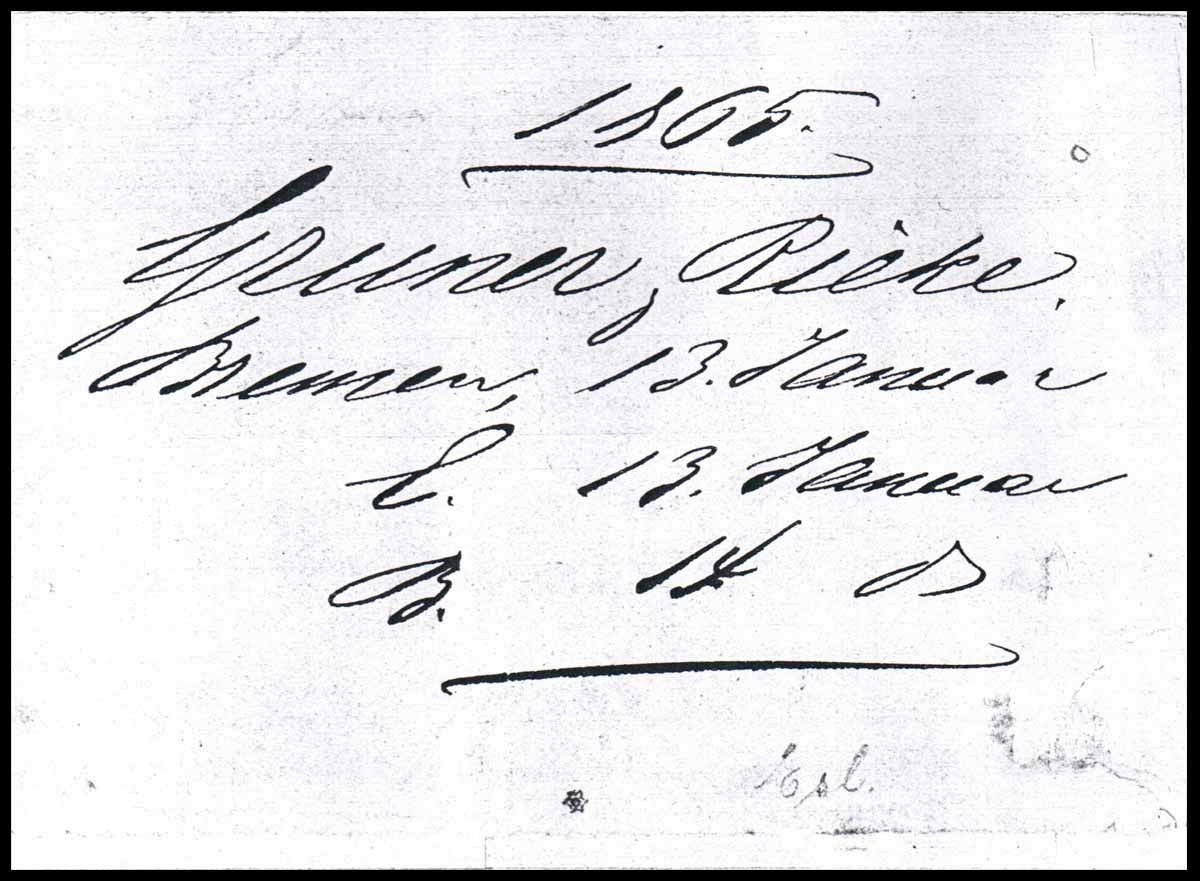 1865.
Gruner, Rieke.
Bremen, 13. Januar
E. 13. Januar
B. 14